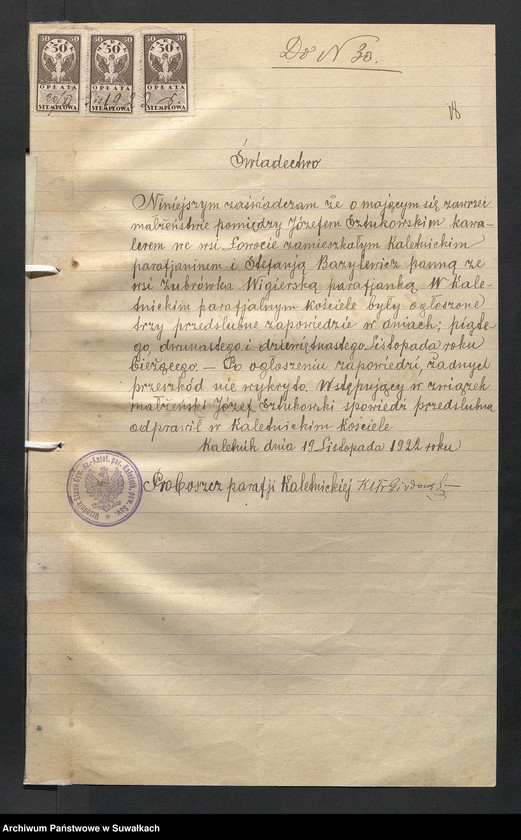 50 50 50 50 50 50
OPŁATA OPŁATA OPŁATA
STEMPLOWA STEMPLOWA STEMPLOWA
Do N 30.
18
Świadectwo
Niniejszym zaświadczam że o mającym się zawrzeć
małżeństwie pomiędzy Józefem Sztukowskim kawa-
lerem we wsi Łowocie zamieszkałym Kaletnickim
parafjaninem i Stefanją Bazylewicz panną ze
wsi Żubrówka Wigierską parafjanką. W Kale-
tnickim parafjalnym kościele były ogłoszone
trzy przedslubne zapowiedzie w dniach; piąte-
go, dwunastego i dziewiętnastego Listopada roku
bieżącego. — Po ogłoszeniu zapowiedzi, żadnych
przeszkód nie wykryto. Wstępujący w związek
małżeński Józef Sztukowski spowiedź przedslubną
odprawił w Kaletnickim Kościele
Kaletnik dnia 19 Listopada 1922 roku
Proboszcz parafji Kaletnickiej
Urzędnik Stanu Cyw. Rz.-Katol. par. Kaletnik, pow. Suw.
Archiwum Państwowe w Suwałkach